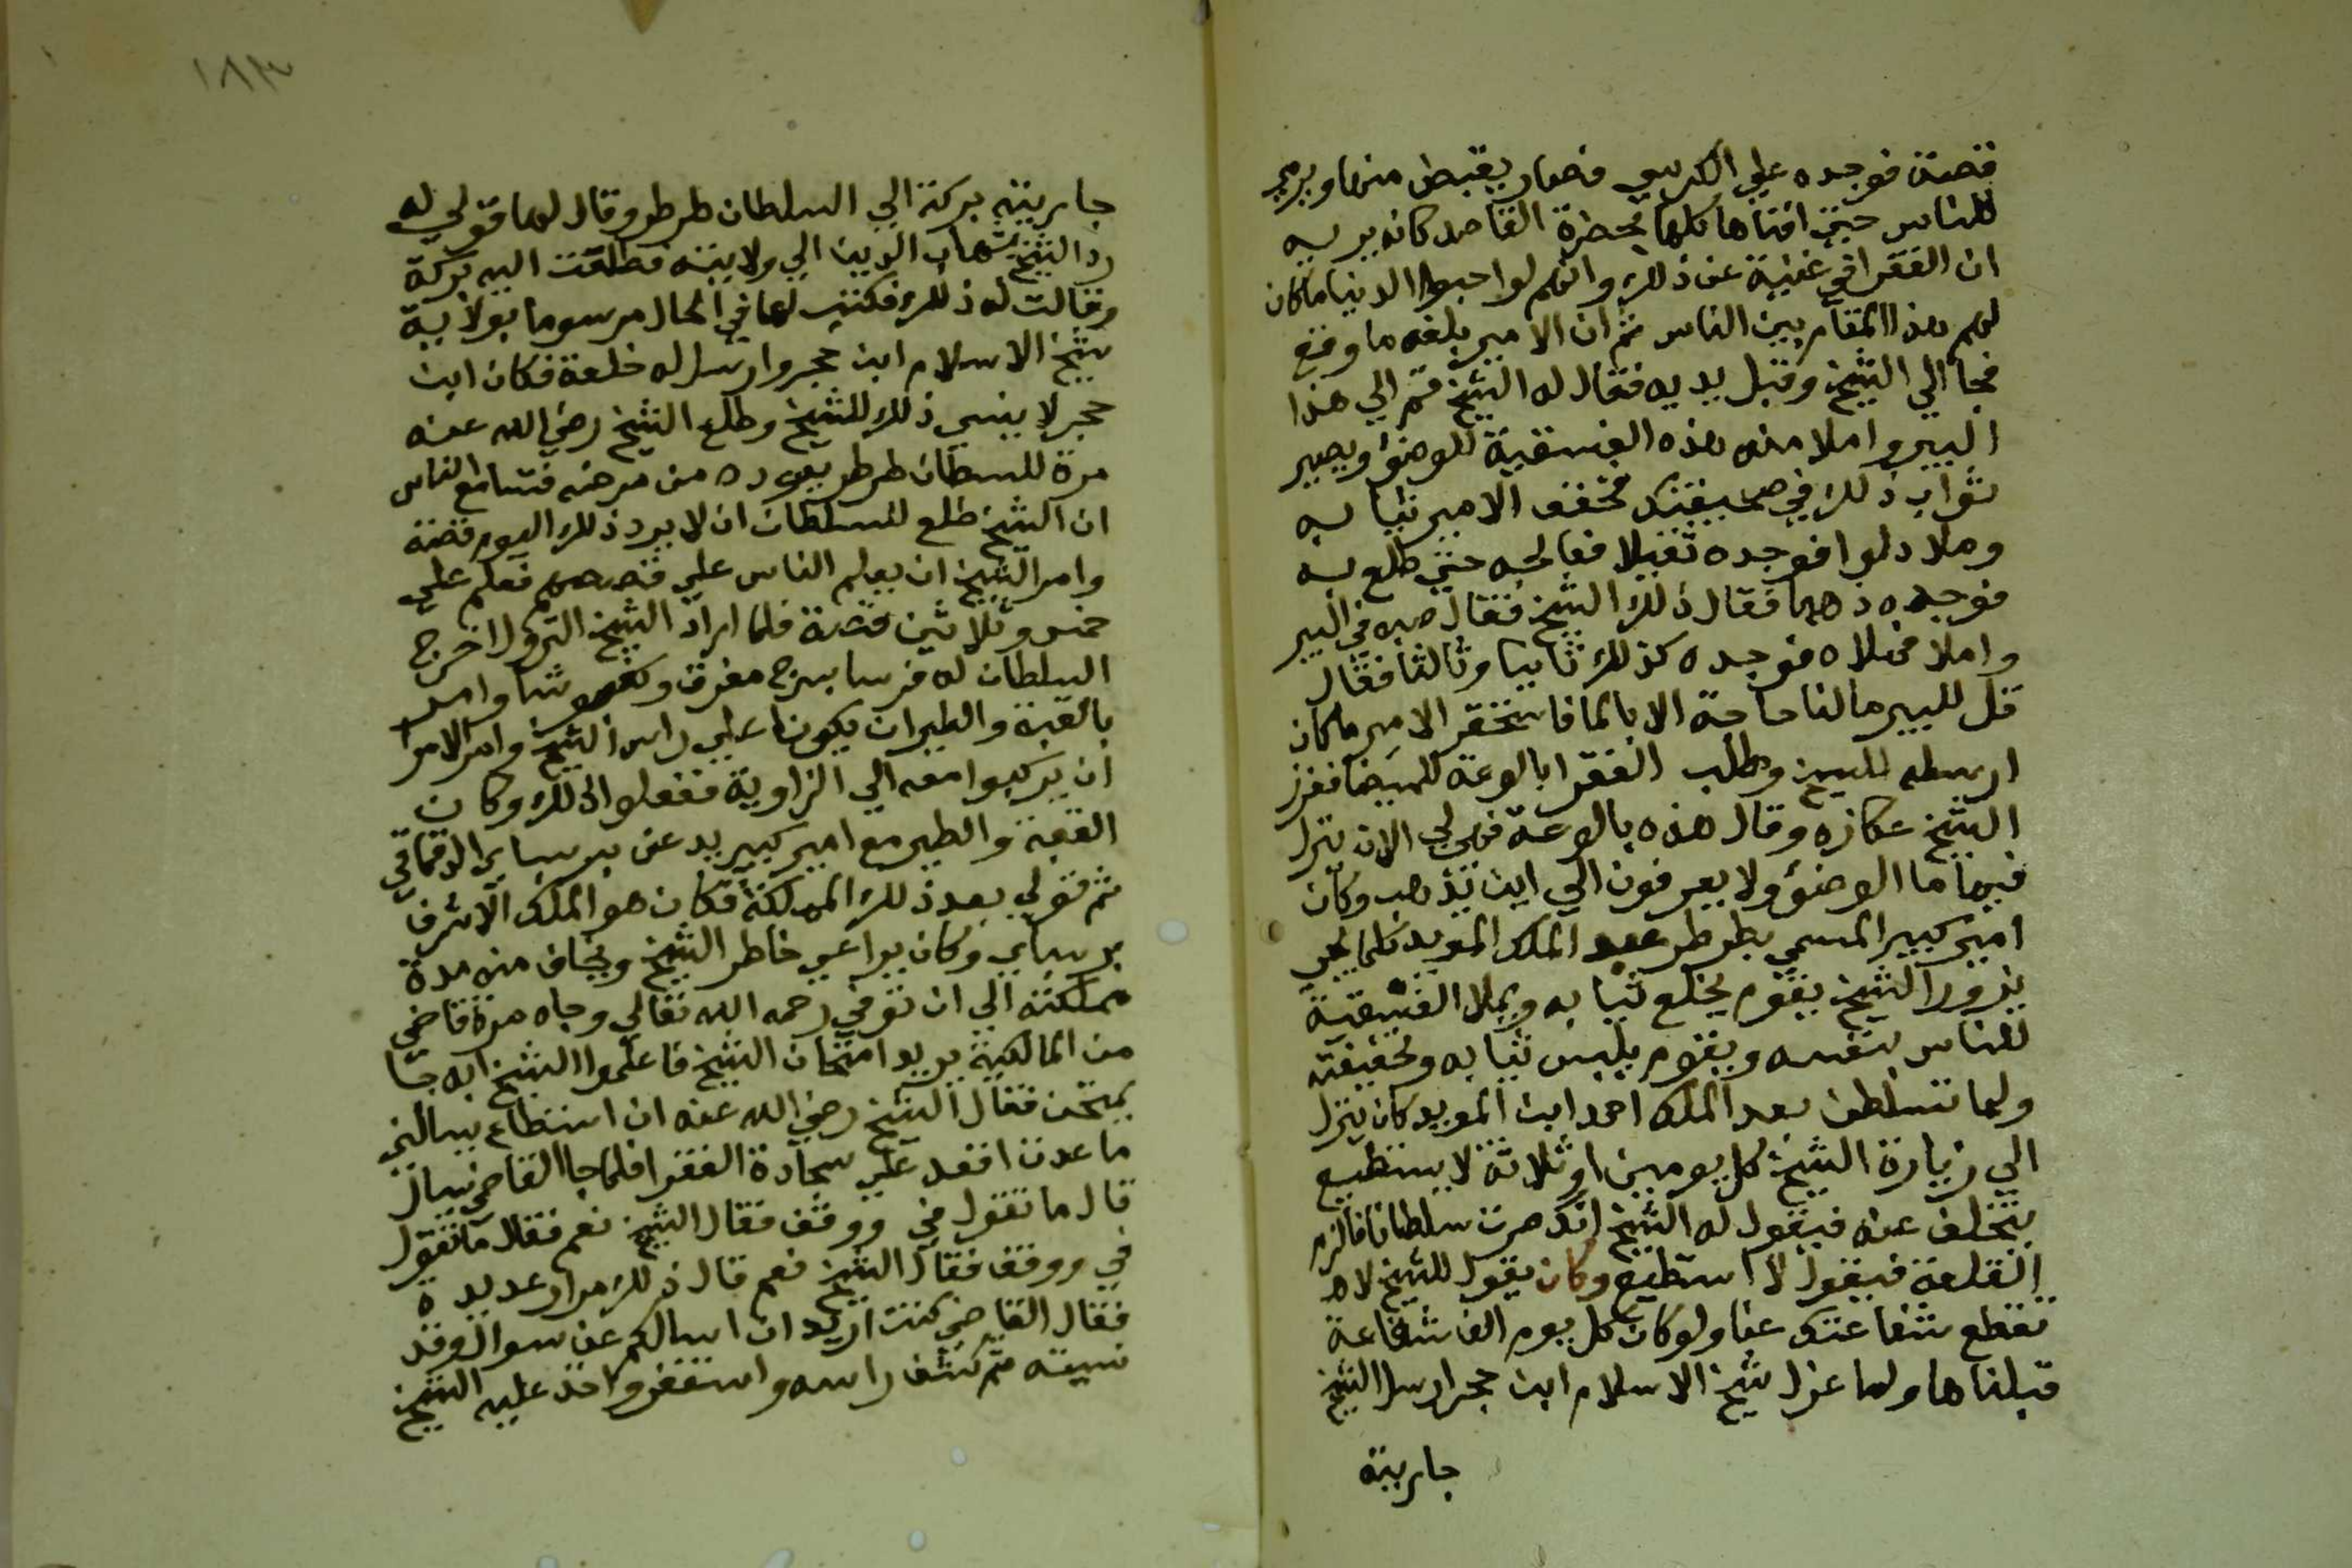 فضة فوجده علي الكرسي فصار يقبض منها ويرمي
للناس حتي افناها كلها بحضرة القاصد كانه يريه
ان الفقرا في غنية عن ذلك وانهم لو احبوا الدنيا ما كان
لهم هذا المقام بين الناس ثم ان الامير بلغه ما وقع
فجا الي الشيخ وقبل يديه فقال له الشيخ قم الي هذا
البير واملا منه هذه الفسقية للوضوء ويصير
ثواب ذلك في صحيفتك فخفف الامير ثيابه
وملا دلوا فوجده ثقيلا فعالجه حتي طلع به
فوجده ذهبا فقال ذلك للشيخ فقال صبه في البير
واملا فملاه فوجده كذلك ثانيا وثالثا فقال
قل للبير ما لنا حاجة الا بالما فاستحقر الامير ما كان
ارسله للشيخ وطلب الفقرا بالوعة للميضا فغرز
الشيخ عكازه وقال هذه بالوعة فهي الي الان ينزل
فيها ما الوضوء ولا يعرفون الي اين تذهب وكان
امير كبير المسمي بططر عند الملك المويد كلما يجي
يزور الشيخ يقوم يخلع ثيابه ويملا الفسقية
للناس بنفسه ويقوم يلبس ثيابه وتخفيفته
ولما تسلطن بعد الملك احمد ابن المويد كان ينزل
الي زيارة الشيخ كل يومين او ثلاثة لا يستطيع
يتخلف عنه فيقول له الشيخ انك صرت سلطانا فالزم
القلعة فيقول لا استطيع وكان يقول للشيخ لا
تقطع شفاعتك عنا ولو كان كل يوم الف شفاعة
قبلناها ولما عزل شيخ الاسلام ابن حجر ارسل الشيخ
جاريته
١٨٣
جاريته بركة الي السلطان ططر وقال لها قولي له
رد الشيخ شهاب الدين الي ولايته فطلعت اليه بركة
وقالت له ذلك فكتب لها في الحال مرسوما بولاية
شيخ الاسلام ابن حجر وارسل له خلعة فكان ابن
حجر لا ينسي ذلك للشيخ وطلع الشيخ رضي الله عنه
مرة للسطان ططر يعوده من مرضه فتسامع الناس
ان الشيخ طلع للسلطان ان لا يرد ذلك اليوم قصة
وامر الشيخ ان يعلم الناس علي قصصهم فعلم علي
خمس وثلاثين قصة فلما اراد الشيخ النزول اخرج
السلطان له فرسا بسرج مغرق وكنبوشا وامر
بالقبة والطير ان يكونا علي راس الشيخ وامر الامرا
ان يركبوا معه الي الزاوية ففعلوا ذلك وكان
القبة والطير مع امير كبير يدعي برسباي الدقماقي
ثم تولي بعد ذلك المملكة فكان هو الملك الاشرف
برسباي وكان يراعي خاطر الشيخ ويخاف منه مدة
مملكته الي ان توفي رحمه الله تعالي وجاه مرة قاضي
من المالكية يريد امتحان الشيخ فاعلموا الشيخ انه جا
يمتحن فقال الشيخ رضي الله عنه ان استطاع يسالني
ما عدت اقعد علي سجادة الفقرا فلما جا القاضي يسال
قال ما تقول في ووقف فقال الشيخ نعم فقال ما تقول
في ووقف فقال الشيخ نعم قال ذلك مرار عديدة
فقال القاضي كنت اريد ان اسالكم عن سوال وقد
نسيته ثم كشف راسه واستغفر واخذ عليه الشيخ